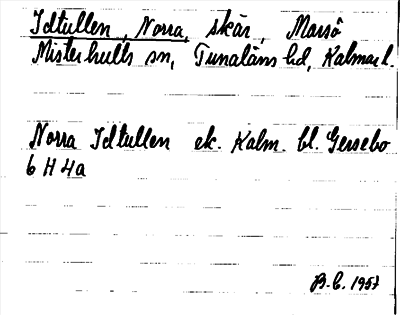 Idtullen, Norra, skär, Marsö
Misterhults sn, Tunaläns hd, Kalmar l.
Norra Idtullen ek. Kalm. bl. Gersebo
6 H 4a
B.C. 1957